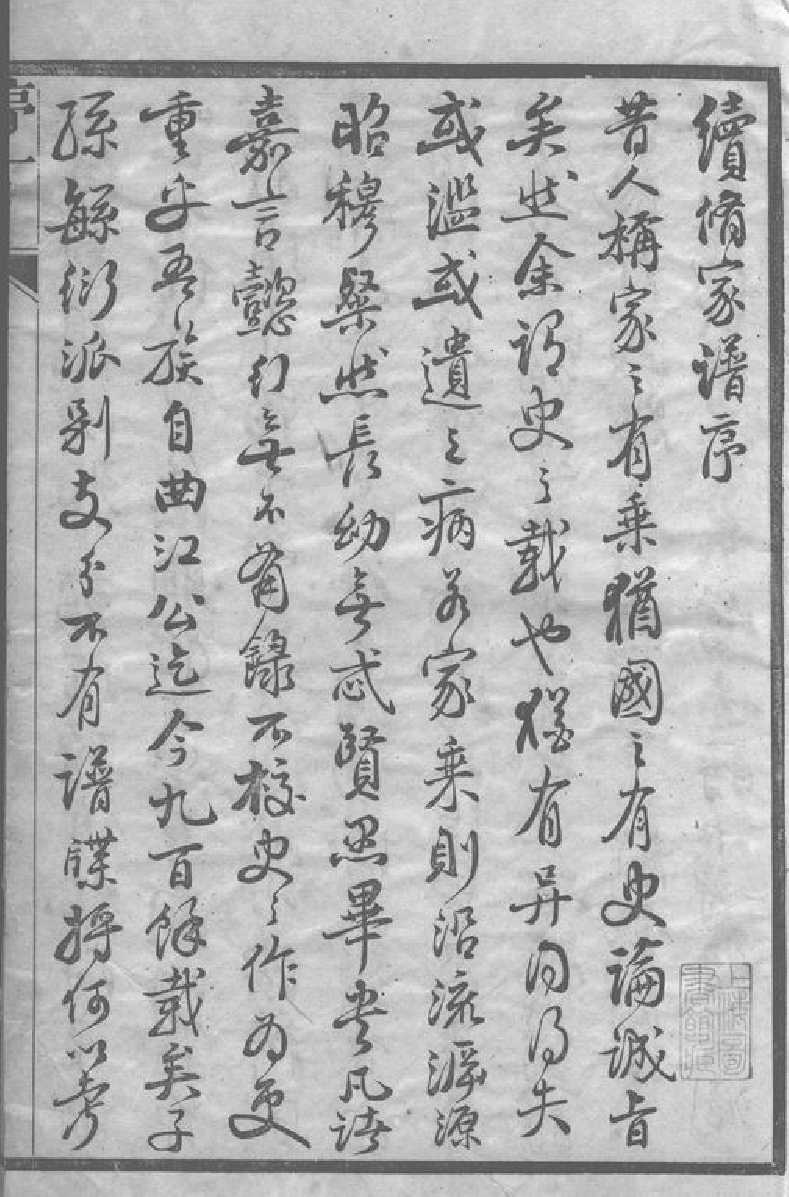 續脩家譜序
昔人稱家之有乘猶國之有史論誠旨
矣然余謂史之載也猶有异同得失
或濫或遺之病若家乘則沿流溯源
昭穆粲然長幼無忒賢愚畢書凡諸
嘉言懿行無不備錄不較史之作為更
重乎吾族自曲江公迄今九百餘載矣子
孫繇衍派别支分不有譜牒將何以考
上海圖
書館藏
序一